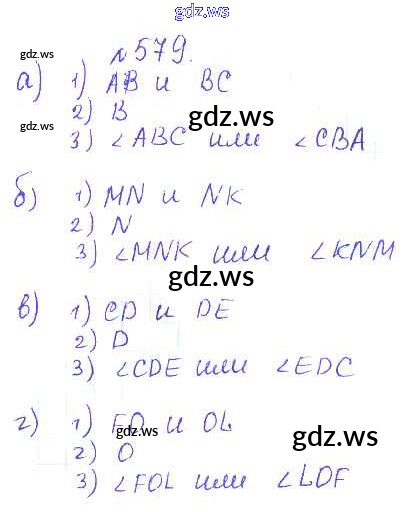 gdz.ws
№ 579.
gdz.ws
а) 1) AB и BC
2) B
gdz.ws
gdz.ws
3) ∠ABC или ∠CBA
б) 1) MN и NK
2) N
3) ∠MNK или ∠KNM
gdz.ws
в) 1) CD и DE
gdz.ws
2) D
3) ∠CDE или ∠EDC
г) 1) FO и OL
gdz.ws
gdz.ws
2) O
3) ∠FOL или ∠LOF